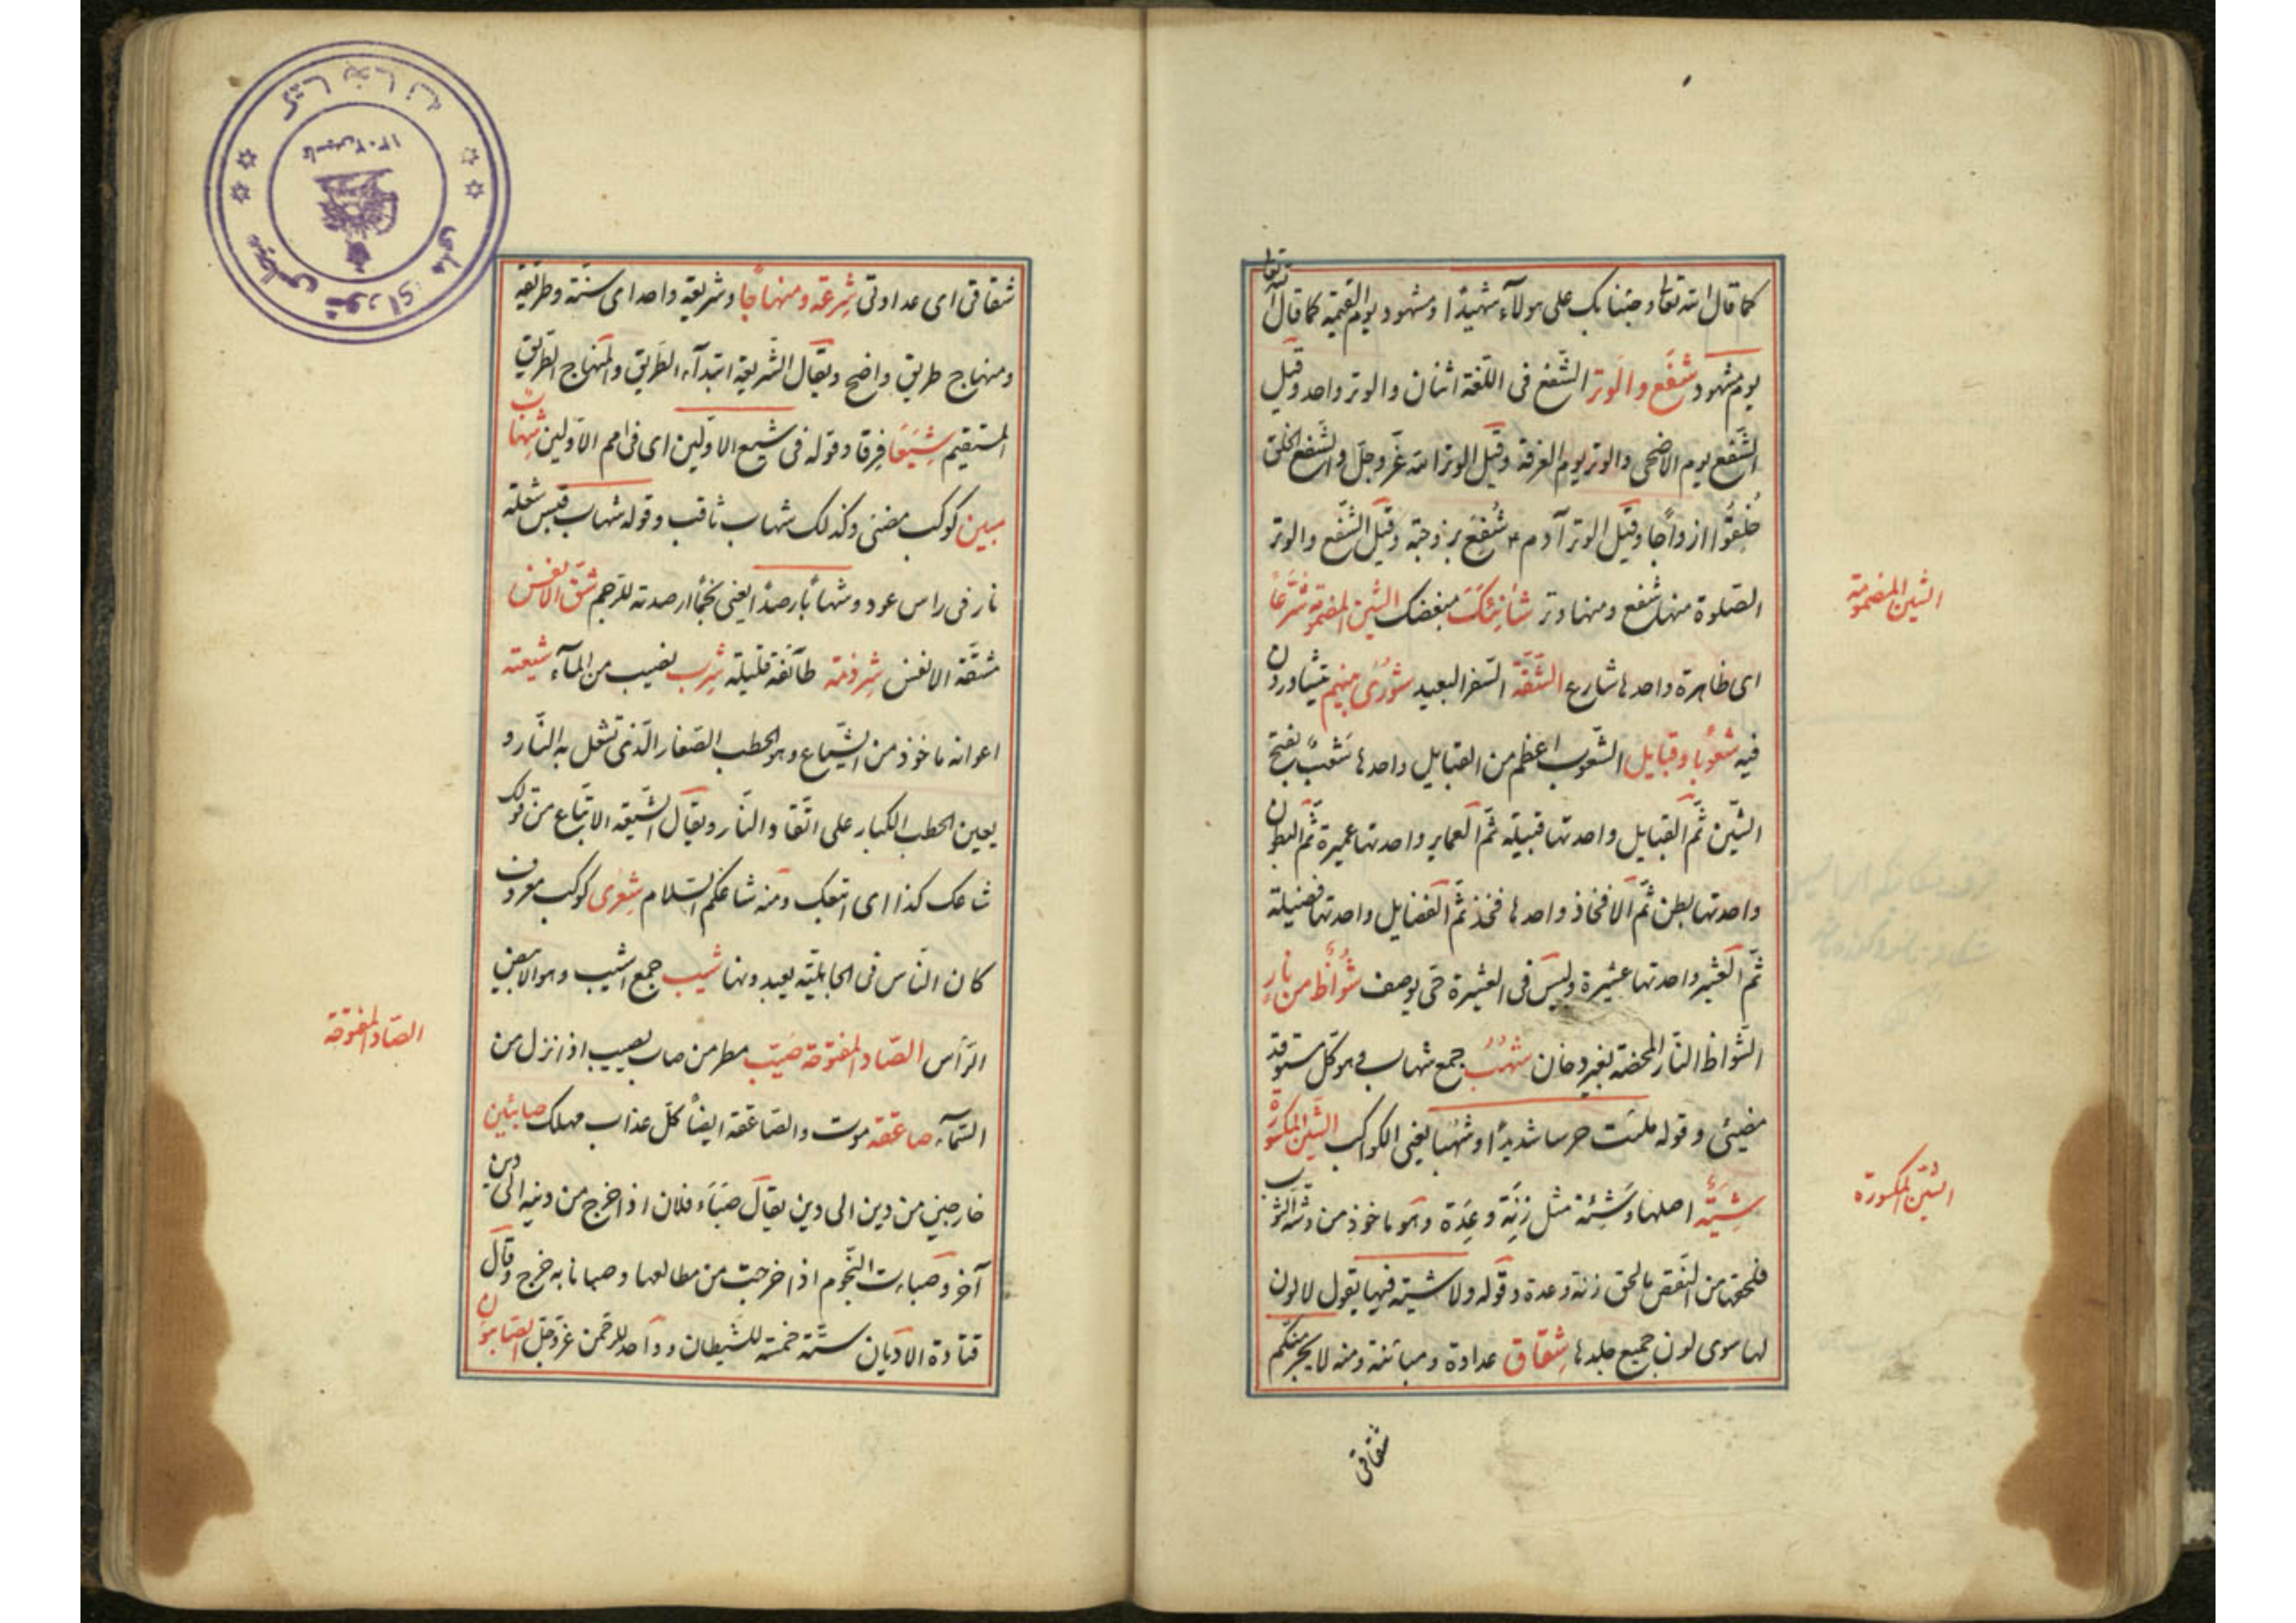 كما قال الله تعالى وجئنا بك على هولآء شهيدًا ومشهود يوم القيمة كما قال الله تعالى
يوم مشهود شفع والوتر الشّفع فى اللّغة اثنان والوتر واحد وقيل
الشّفع يوم الاضحى والوتر يوم العرفة وقيل الوتر الله عزّ وجلّ والشّفع الخلق
خُلِقُوا ازواجًا وقيل الوتر آدم ع شُفِعَ بزوجته وقيل الشّفع والوتر
الصّلوة منها شفع ومنها وتر شانِئَكَ مبغضك الشّين المضمومة شُرَّعًا
اى ظاهرة واحدها شارع الشُّقّة السّفر البعيد شُورى بينهم يتشاورون
فيه شعُوبا وقبايل الشّعوب اعظم من القبايل واحدها شَعْبٌ بفتح
الشّين ثمّ القبايل واحدتها قبيلة ثمّ العماير واحدتها عميرة ثمّ البطون
واحدتها بطن ثمّ الافخاذ واحدها فخذ ثمّ الفضايل واحدتها فضيلة
ثمّ العشير واحدتها عشيرة وليس فى العشيرة حى يوصف شُواظ من نارٍ
الشّواظ النّار المحضة بغير دخان شُهُبٌ جمع شهاب وهو كلّ متوقد
مضيئ وقوله ملئت حرسا شديدًا وشهبا يعنى الكواكب الشّين المكسورة
شِيَةَ اصلها وَشْيَة مثل زِنَة وعِدَة وهو ماخوذ من وشى الثوب
فلحقها من النّقص ما لحق زنة وعدة وقوله ولا شية فيها يقول لا لون
لها سوى لون جميع جلدها شِقاق عداوة ومباينة ومنه لا يجرمنكم
شقاقى
الشّين المضمومة
الشّين المكسورة
شقاقى اى عداوتى شِرعة ومنهاجًا وشريعة واحد اى سنّة وطريقة
ومنهاج طريق واضح ويقال الشّريعة ابتدآء الطّريق والمنهاج الطّريق
المستقيم شِيَعًا فِرقا وقوله فى شيع الاوّلين اى فى امم الاوّلين شِهاب
مبين كوكب مضئ وكذلك شهاب ثاقب وقوله شهاب قبس شعلة
نار فى راس عود وشهابًا رصدًا يعنى نجمًا ارصد به للرّجم شقّ الانفس
مشقّة الانفس شِرذمة طآئفة قليلة شِرب نصيب من المآء شيعته
اعوانه ماخوذ من الشّياع وهو الحطب الصّغار الّذى تشعل به النّار و
يعين الحطب الكبار على اتّقاد النّار ويقال الشّيعه الاتباع من قولك
شاعك كذا اى اتبعك ومنه شاعكم السّلام شِعرى كوكب معروف
كان النّاس فى الجاهليّة يعبدونها شيب جمع اشيب وهو الابيض
الرّأس الصّاد المفتوحة صَيّب مطر من صاب يصيب اذا نزل من
السّمآء صاعقة موت والصّاعقة ايضًا كلّ عذاب مهلك صابئين
خارجين من دين الى دين يقال صبَاَء فلان اذا خرج من دينه الى دين
آخر وصباءت النّجوم اذا خرجت من مطالعها وصبا نابه خرج وقال
قتادة الاديان ستّة خمسة للشّيطان وواحد للرّحمن عزّ وجلّ الصّابئون
الصّاد المفتوحة
كتابخانه
مجلس شوراى ملى